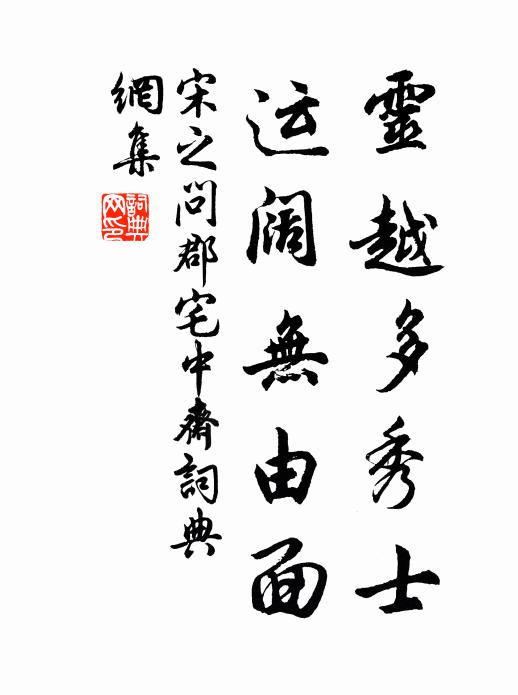 靈越多秀士
运阔無由面
宋之問郡宅中齋詞典
網集
詞典网印